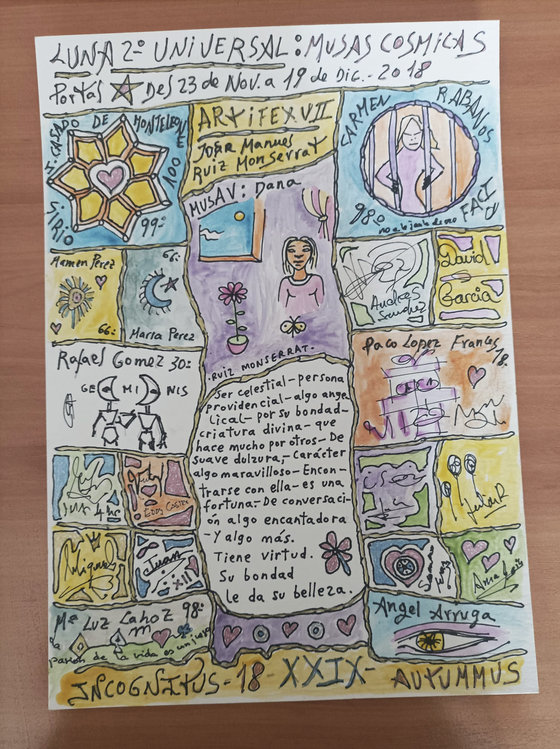 LUNA 2º UNIVERSAL: MUSAS COSMICAS
PORTAS DES 23 de NOV. a 19 de DIC.-2018
J. CASADO DE MONTELEONE
SIRIO 99º
ARTIFEX VII
JOSÉ MANUEL
RUIZ MONSERRAT
MUSA V: Dana
CARMEN RABANOS FACI
98º
Mamen Perez
66º
66º
Marta Perez
Andrés
Sanchez
David
Garcia
Rafael Gomez 30º
GEMINIS
Paco Lopez Frances
18º
RUIZ MONSERRAT.
Ser celestial- persona
providencial- algo ange
lical- por su bondad-
criatura divina- que
hace mucho por otros- De
suave dulzura,- Carácter
algo maravilloso- Encon-
trarse con ella- es una
fortuna- De conversaci-
ón algo encantadora
-Y algo más.
Tiene virtud.
Su bondad
le da su belleza.
EDDY CASTRO
Miguel
Juan
XII
Mª Luz Lahoz 98º
la pasión de la vida es
Angel Arruga
INCOGNITUS-18-XXIX-AUTUMMUS